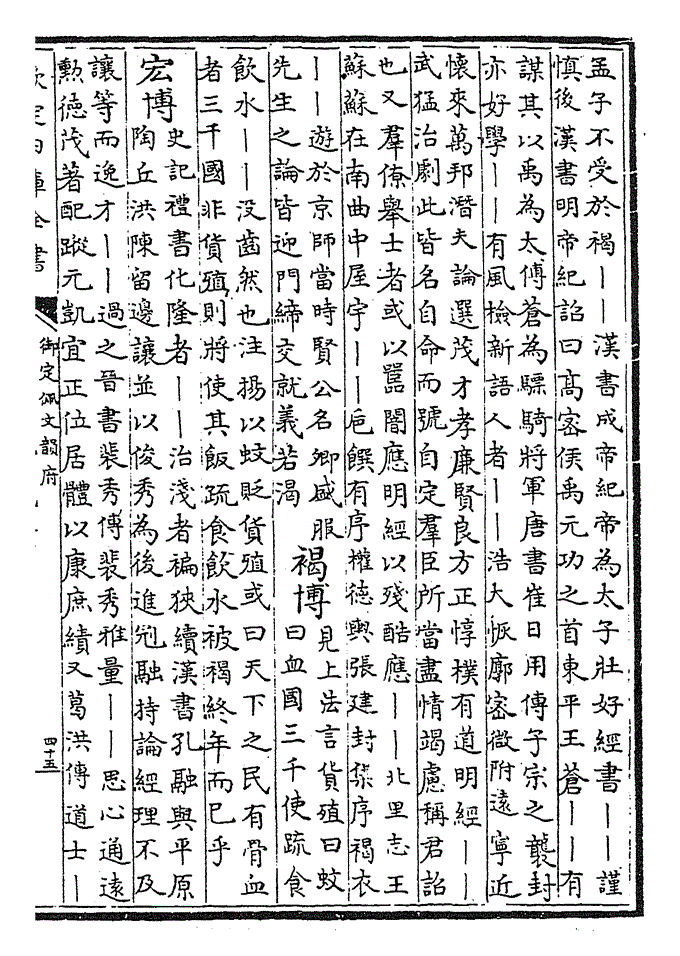 孟子不受於褐｜｜漢書成帝紀帝為太子壯好經書｜｜謹
慎後漢書明帝紀詔曰髙宻侯禹元功之首東平王蒼｜｜有
謀其以禹為太傅蒼為驃騎將軍唐書崔日用傳子宗之襲封
亦好學｜｜有風檢新語人者｜｜浩大恢廓宻微附遠寧近
懷來萬邦潛夫論選茂才孝廉賢良方正惇樸有道明經｜｜
武猛治劇此皆名自命而號自定羣臣所當盡情竭慮稱君詔
也又羣僚舉士者或以嚚闇應明經以殘酷應｜｜北里志王
蘇蘇在南曲中屋宇｜｜巵饌有序權德輿張建封集序褐衣
｜｜遊於京師當時賢公名卿盛服
先生之論皆迎門締交就義若渴
褐博
見上法言貨殖曰蚊
曰血國三千使疏食
飲水｜｜没齒然也注揚以蚊貶貨殖或曰天下之民有骨血
者三千國非貨殖則將使其飯疏食飲水被褐終年而已乎
宏博
史記禮書化隆者｜｜治淺者褊狹續漢書孔融與平原
陶丘洪陳留邊讓並以俊秀為後進冠融持論經理不及
讓等而逸才｜｜過之晉書裴秀傳裴秀雅量｜｜思心通遠
勲徳茂著配蹤元凱宜正位居體以康庶績又葛洪傳道士｜
欽定四庫全書
御定佩文韻府
四十五